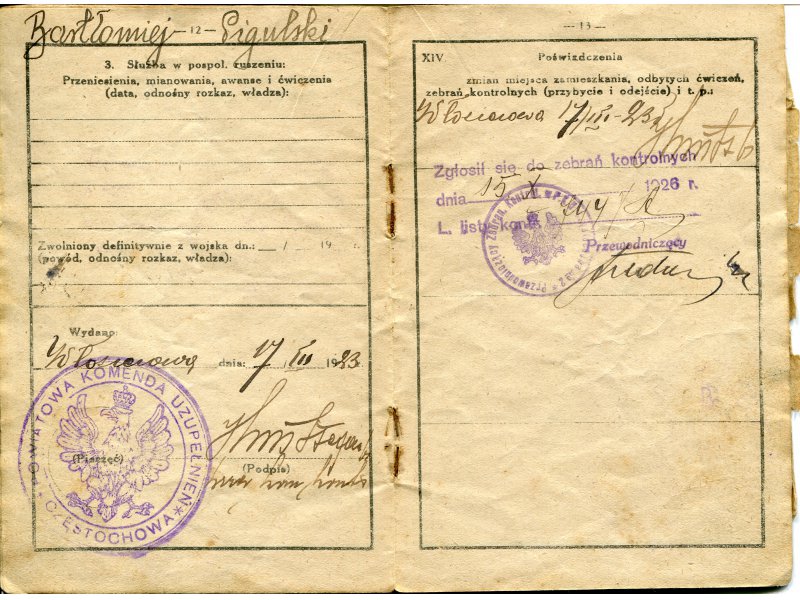 Bartłomiej — 12 — Pigulski
3. Służba w pospol. ruszeniu:
Przeniesienia, mianowania, awanse i ćwiczenia
(data, odnośny rozkaz, władza):
Zwolniony definitywnie z wojska dn.: / 19 r.
(powód, odnośny rozkaz, władza):
Wydano:
dnia: 17/III 1923.
POWIATOWA KOMENDA UZUPEŁNIEŃ
* CZĘSTOCHOWA *
(Pieczęć)
(Podpis)
— 13 —
XIV. Poświadczenia
zmian miejsca zamieszkania, odbytych ćwiczeń,
zebrań kontrolnych (przybycie i odejście) i t. p.:
17/III-23
Zgłosił się do zebrań kontrolnych
dnia 15 X 1926 r.
L. listy kontr.
Przewodniczący
Przewodniczący Zebrań Kontrol.